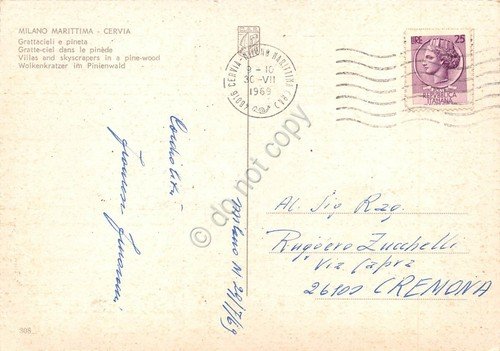 MILANO MARITTIMA - CERVIA
Grattacieli e pineta
Gratte-ciel dans le pinède
Villas and skyscrapers in a pine-wood
Wolkenkratzer im Pinienwald
48016 CERVIA-MILANO MARITTIMA (RA)
9-10
30-VII
1969
LIRE 25
REPUBBLICA
ITALIANA
Cordialità
Milano M 29/7/69
Al Sig Rag.
Ruggero Zucchelli
Via Capra
26100 CREMONA
308
do not copy